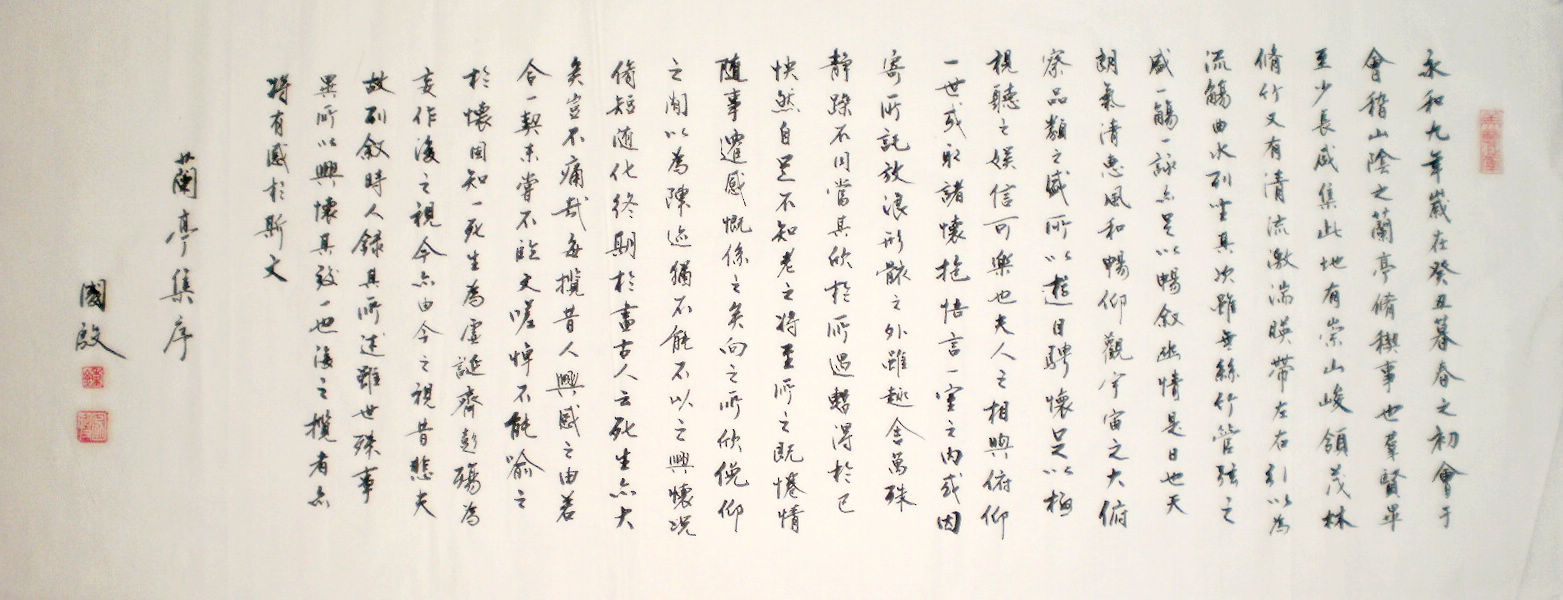 永和九年歲在癸丑暮春之初會于
會稽山陰之蘭亭脩禊事也羣賢畢
至少長咸集此地有崇山峻領茂林
脩竹又有清流激湍暎帶左右引以為
流觴曲水列坐其次雖無絲竹管弦之
盛一觴一詠亦足以暢叙幽情是日也天
朗氣清惠風和暢仰觀宇宙之大俯
察品類之盛所以遊目騁懷足以極
視聽之娛信可樂也夫人之相與俯仰
一世或取諸懷抱悟言一室之內或因
寄所託放浪形骸之外雖趣舍萬殊
靜躁不同當其欣於所遇暫得於己
快然自足不知老之將至所之既惓情
隨事遷感慨係之矣向之所欣俛仰
之閒以為陳迹猶不能不以之興懷況
脩短隨化終期於盡古人云死生亦大
矣豈不痛哉每攬昔人興感之由若
合一契未嘗不臨文嗟悼不能喻之
於懷固知一死生為虛誕齊彭殤為
妄作後之視今亦由今之視昔悲夫
故列叙時人錄其所述雖世殊事
異所以興懷其致一也後之攬者亦
將有感於斯文
蘭亭集序
國啟